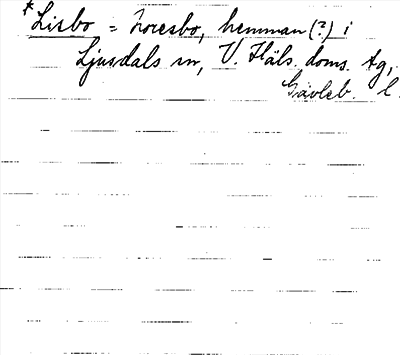 *Lisbo = Zoresbo, hemman (?) i
Ljusdals sn, V. Häls. doms. tg,
Gävleb. l.